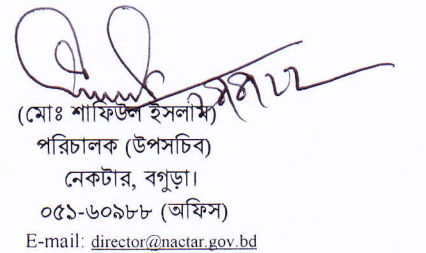 (মোঃ শাফিউল ইসলাম)
পরিচালক (উপসচিব)
নেকটার, বগুড়া।
০৫১-৬০৯৮৮ (অফিস)
E-mail: director@nactar.gov.bd